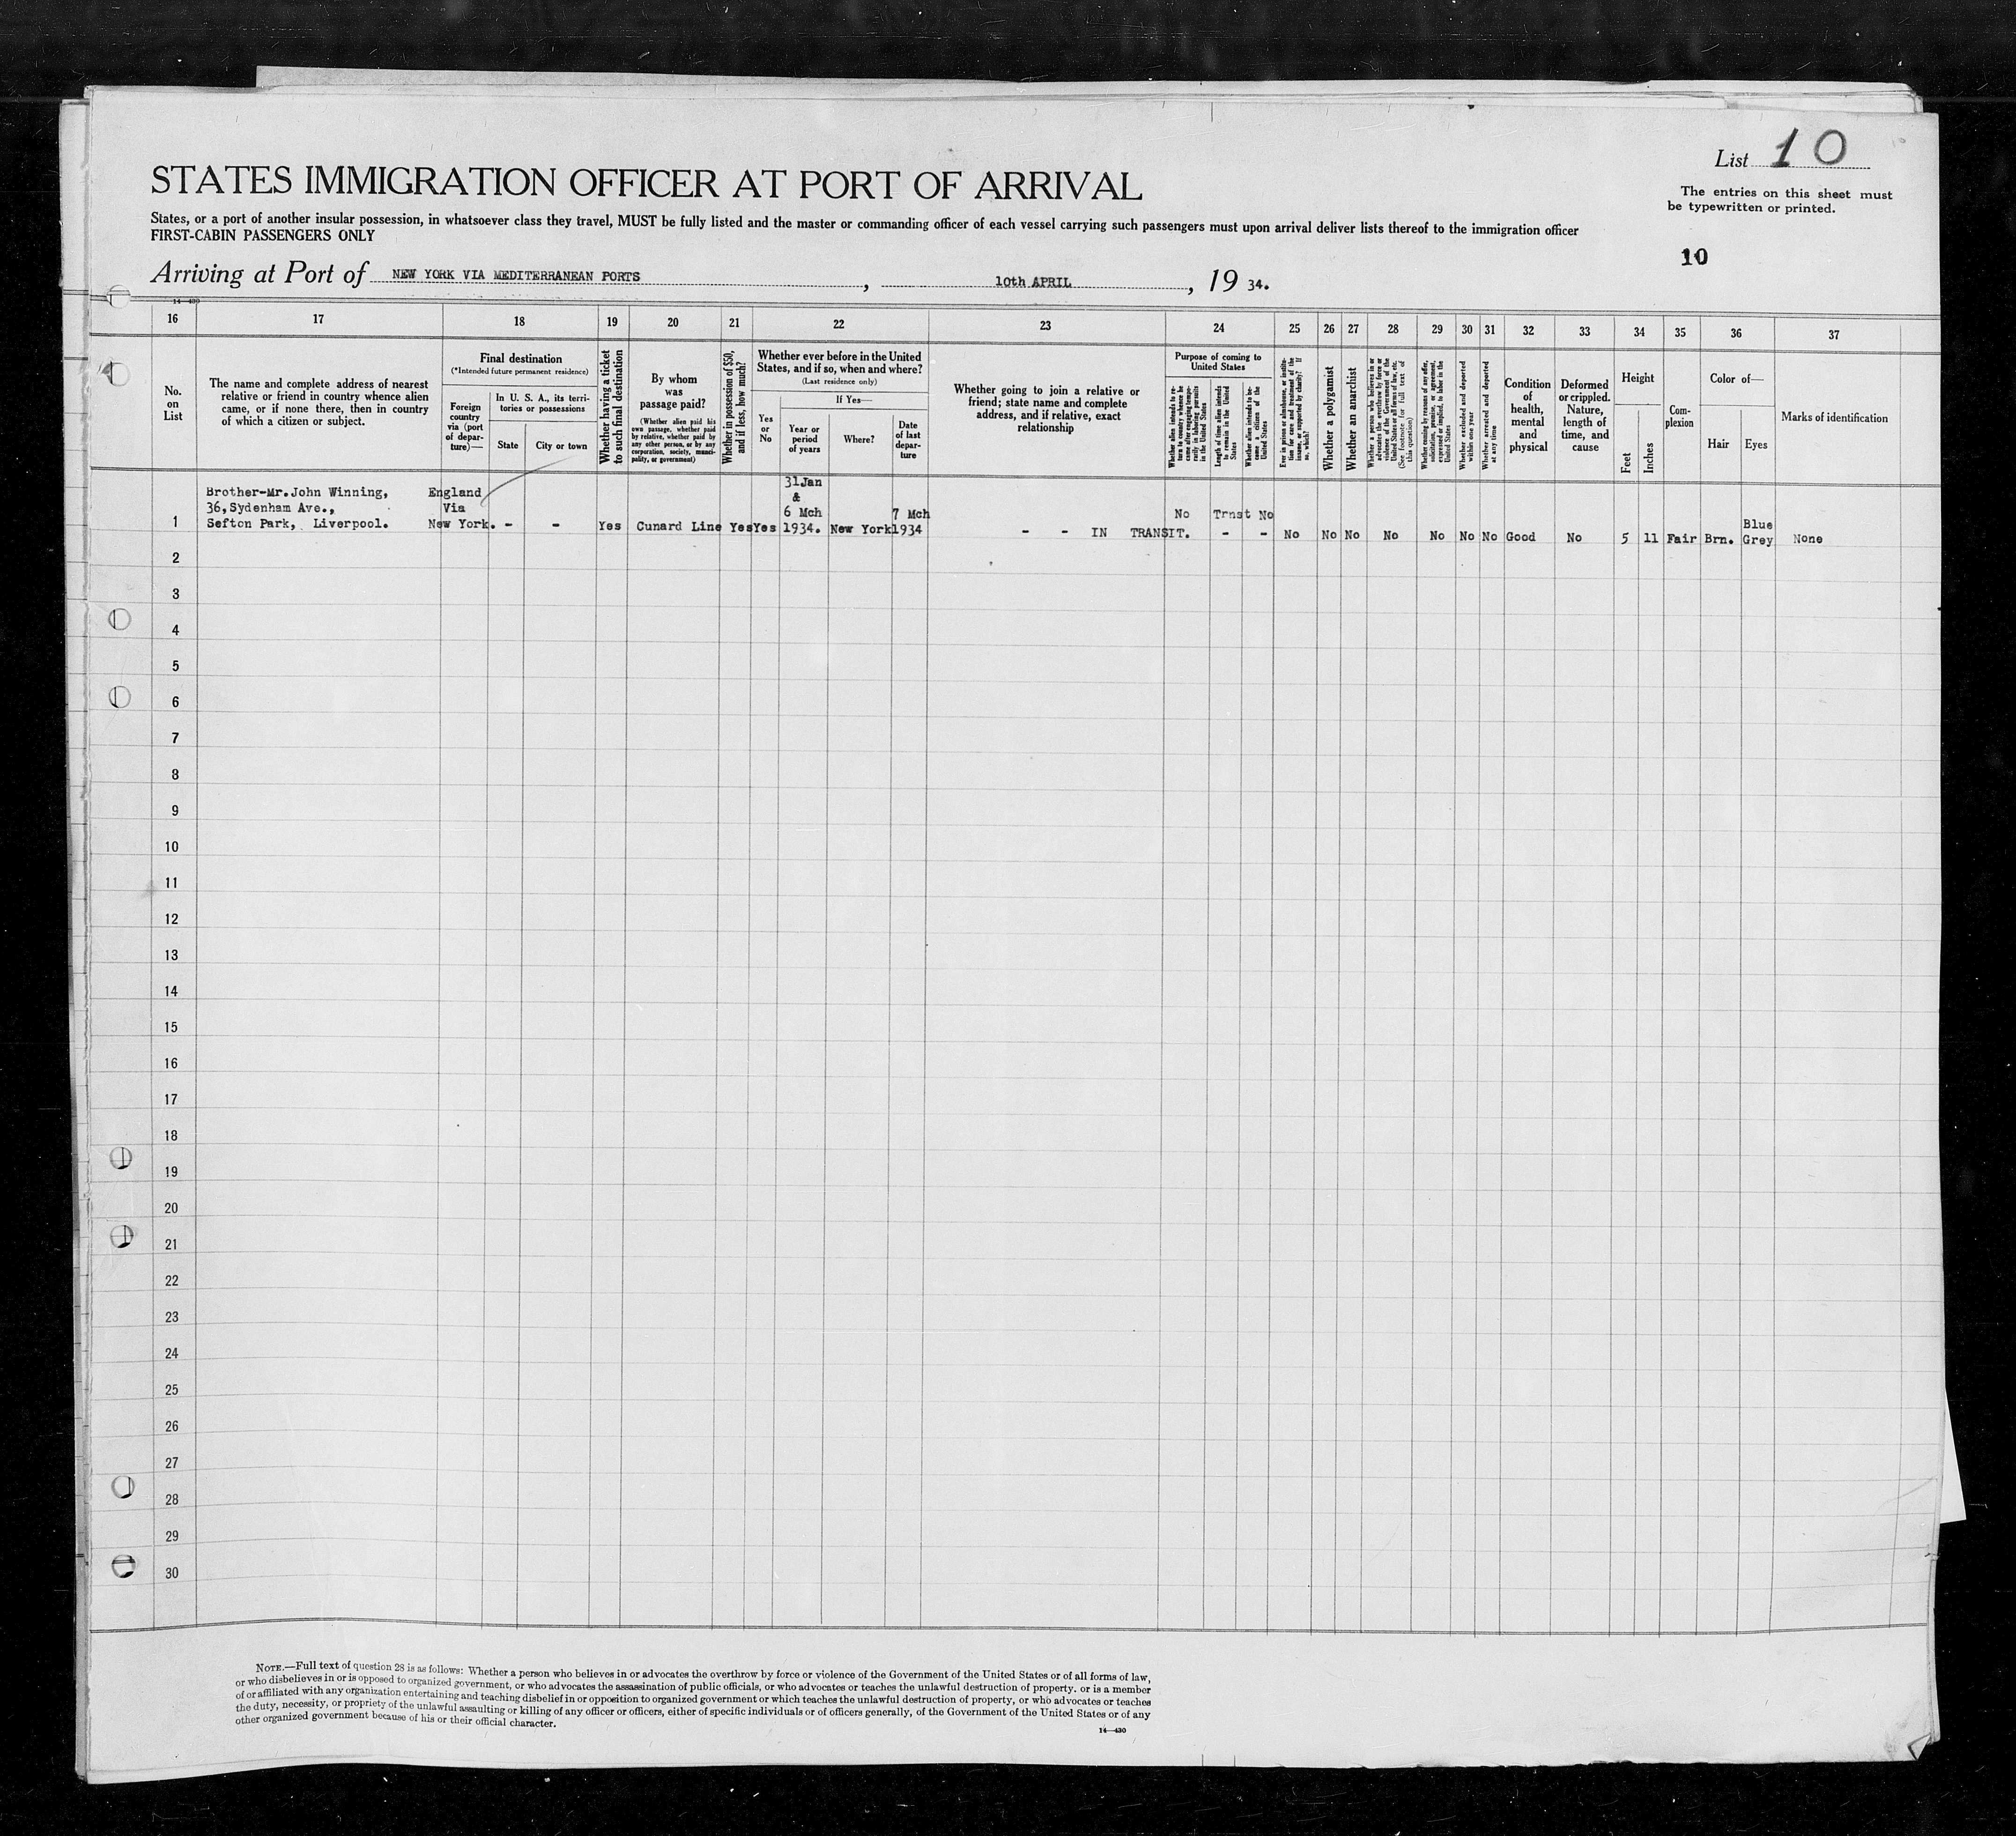 List 10
STATES IMMIGRATION OFFICER AT PORT OF ARRIVAL
The entries on this sheet must
be typewritten or printed.
States, or a port of another insular possession, in whatsoever class they travel, MUST be fully listed and the master or commanding officer of each vessel carrying such passengers must upon arrival deliver lists thereof to the immigration officer
FIRST-CABIN PASSENGERS ONLY
10
Arriving at Port of NEW YORK VIA MEDITERRANEAN PORTS, 10th APRIL, 19 34.
14—430
16 17 18 19 20 21 22 23 24 25 26 27 28 29 30 31 32 33 34 35 36 37
No.
on
List
The name and complete address of nearest
relative or friend in country whence alien
came, or if none there, then in country
of which a citizen or subject.
Final destination
(*Intended future permanent residence)
Foreign
country
via (port
of depar-
ture)—
In U. S. A., its terri-
tories or possessions
State
City or town
Whether having a ticket
to such final destination
By whom
was
passage paid?
(Whether alien paid his
own passage, whether paid
by relative, whether paid by
any other person, or by any
corporation, society, munici-
pality, or government)
Whether in possession of $50,
and if less, how much?
Whether ever before in the United
States, and if so, when and where?
(Last residence only)
Yes
or
No
If Yes—
Year or
period
of years
Where?
Date
of last
depar-
ture
Whether going to join a relative or
friend; state name and complete
address, and if relative, exact
relationship
Purpose of coming to
United States
Whether alien intends to re-
turn to country whence he
came after engaging tempo-
rarily in laboring pursuits
in the United States
Length of time alien intends
to remain in the United
States
Whether alien intends to be-
come a citizen of the
United States
Ever in prison or almshouse, or institu-
tion for care and treatment of the
insane, or supported by charity? If
so, which?
Whether a polygamist
Whether an anarchist
Whether a person who believes in or
advocates the overthrow by force or
violence of the Government of the
United States or all forms of law, etc.
(See footnote for full text of
this question)
Whether coming by reasons of any offer,
solicitation, promise, or agreement,
expressed or implied, to labor in the
United States
Whether excluded and deported
within one year
Whether arrested and deported
at any time
Condition
of
health,
mental
and
physical
Deformed
or crippled.
Nature,
length of
time, and
cause
Height
Feet
Inches
Com-
plexion
Color of—
Hair
Eyes
Marks of identification
Brother-Mr. John Winning,
36, Sydenham Ave.,
Sefton Park, Liverpool.
England
Via
New York.
- - Yes Cunard Line Yes Yes
31Jan
&
6 Mch
1934.
New York
7 Mch
1934
- - IN TRANSIT.
No Trnst No
- - No No No No No No No Good No 5 11 Fair Brn.
Blue
Grey
None
1
2
3
4
5
6
7
8
9
10
11
12
13
14
15
16
17
18
19
20
21
22
23
24
25
26
27
28
29
30
NOTE.—Full text of question 28 is as follows: Whether a person who believes in or advocates the overthrow by force or violence of the Government of the United States or of all forms of law,
or who disbelieves in or is opposed to organized government, or who advocates the assassination of public officials, or who advocates or teaches the unlawful destruction of property. or is a member
of or affiliated with any organization entertaining and teaching disbelief in or opposition to organized government or which teaches the unlawful destruction of property, or who advocates or teaches
the duty, necessity, or propriety of the unlawful assaulting or killing of any officer or officers, either of specific individuals or of officers generally, of the Government of the United States or of any
other organized government because of his or their official character.
14—430